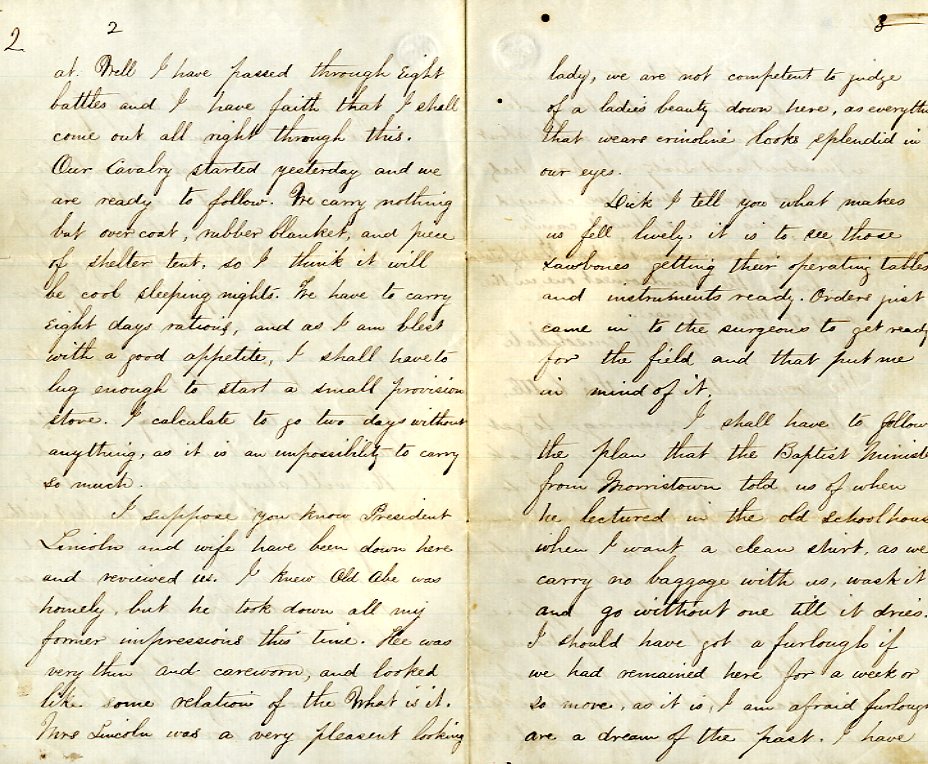 2
2
at. Well I have passed through Eight
battles and I have faith that I shall
come out all right through this.
Our Cavalry started yesterday and we
are ready to follow. We carry nothing
but overcoat, rubber blanket, and piece
of shelter tent, so I think it will
be cool sleeping nights. We have to carry
Eight days rations, and as I am blest
with a good appetite, I shall have to
lug enough to start a small provision
stove. I calculate to go two days without
anything, as it is an impossibility to carry
so much.
I suppose you know President
Lincoln and wife have been down here
and reviewed us. I knew Old Abe was
homely, but he took down all my
former impressions this time. Hee was
very thin and careworn, and looked
like some relation of the What is it.
Mrs Lincoln was a very pleasent looking
3
lady, we are not competent to judge
of a ladies beauty down here, as everythin
that wears crinoline looks splendid in
our eyes.
Dick I tell you what makes
us fell lively, it is to see those
sawbones getting their operating tables
and instruments ready. Orders just
came in to the surgeons to get ready
for the field and that put me
in mind of it.
I shall have to follow
the plan that the Baptist Ministe
from Morristown told us of when
he lectured in the old schoolhous
when I want a clean shirt, as we
carry no baggage with us, wash it
and go without one till it dries.
I should have got a furlough if
we had remained here for a week or
so more, as it is, I am afraid furlough
are a dream of the past. I have